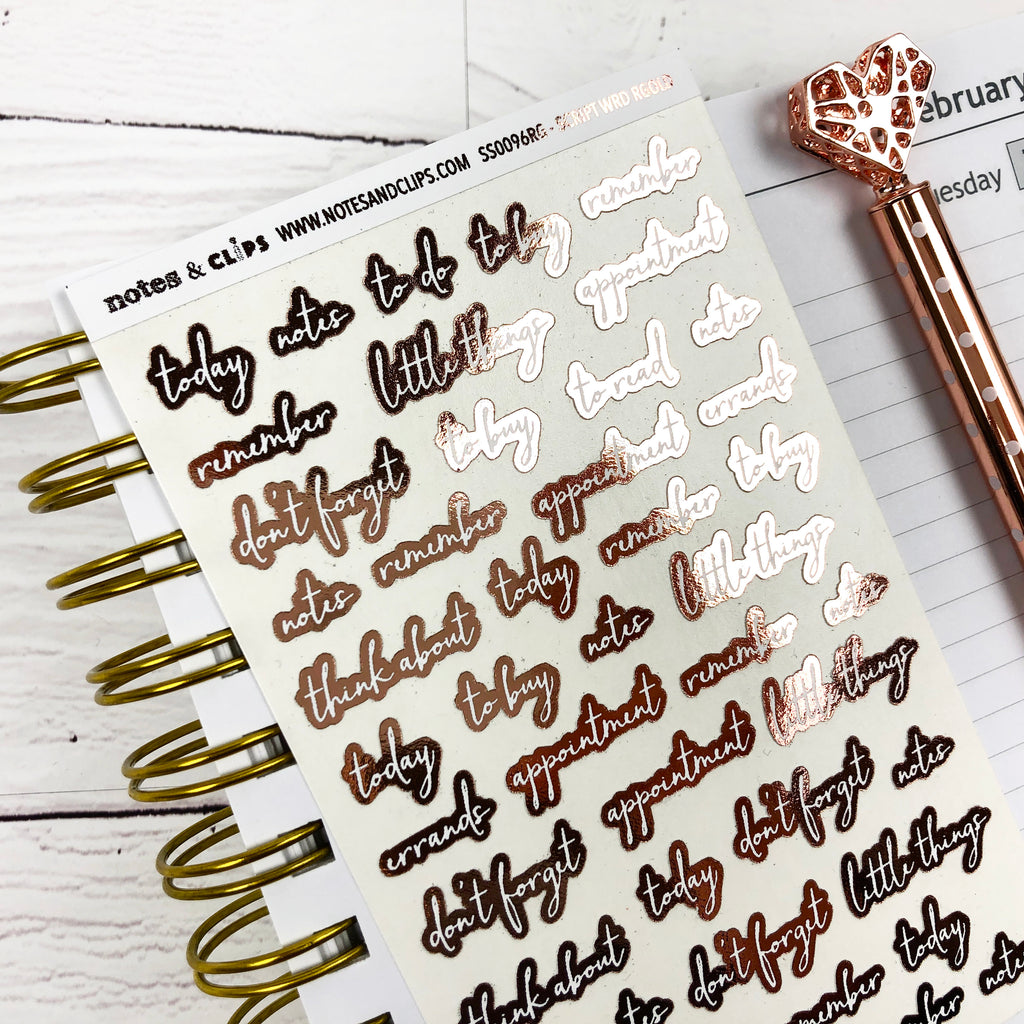 notes & clips WWW.NOTESANDCLIPS.COM SS0096RG - SCRIPT WRD RGOLD
ebruary
uesday
today notes to do to buy remember
little things appointment
remember to buy to read notes
don't forget appointment errands
notes remember today remember to buy
think about to buy notes little things
today appointment remember notes
errands appointment little things
don't forget today don't forget notes
think about don't forget little things
notes remember today
ber note